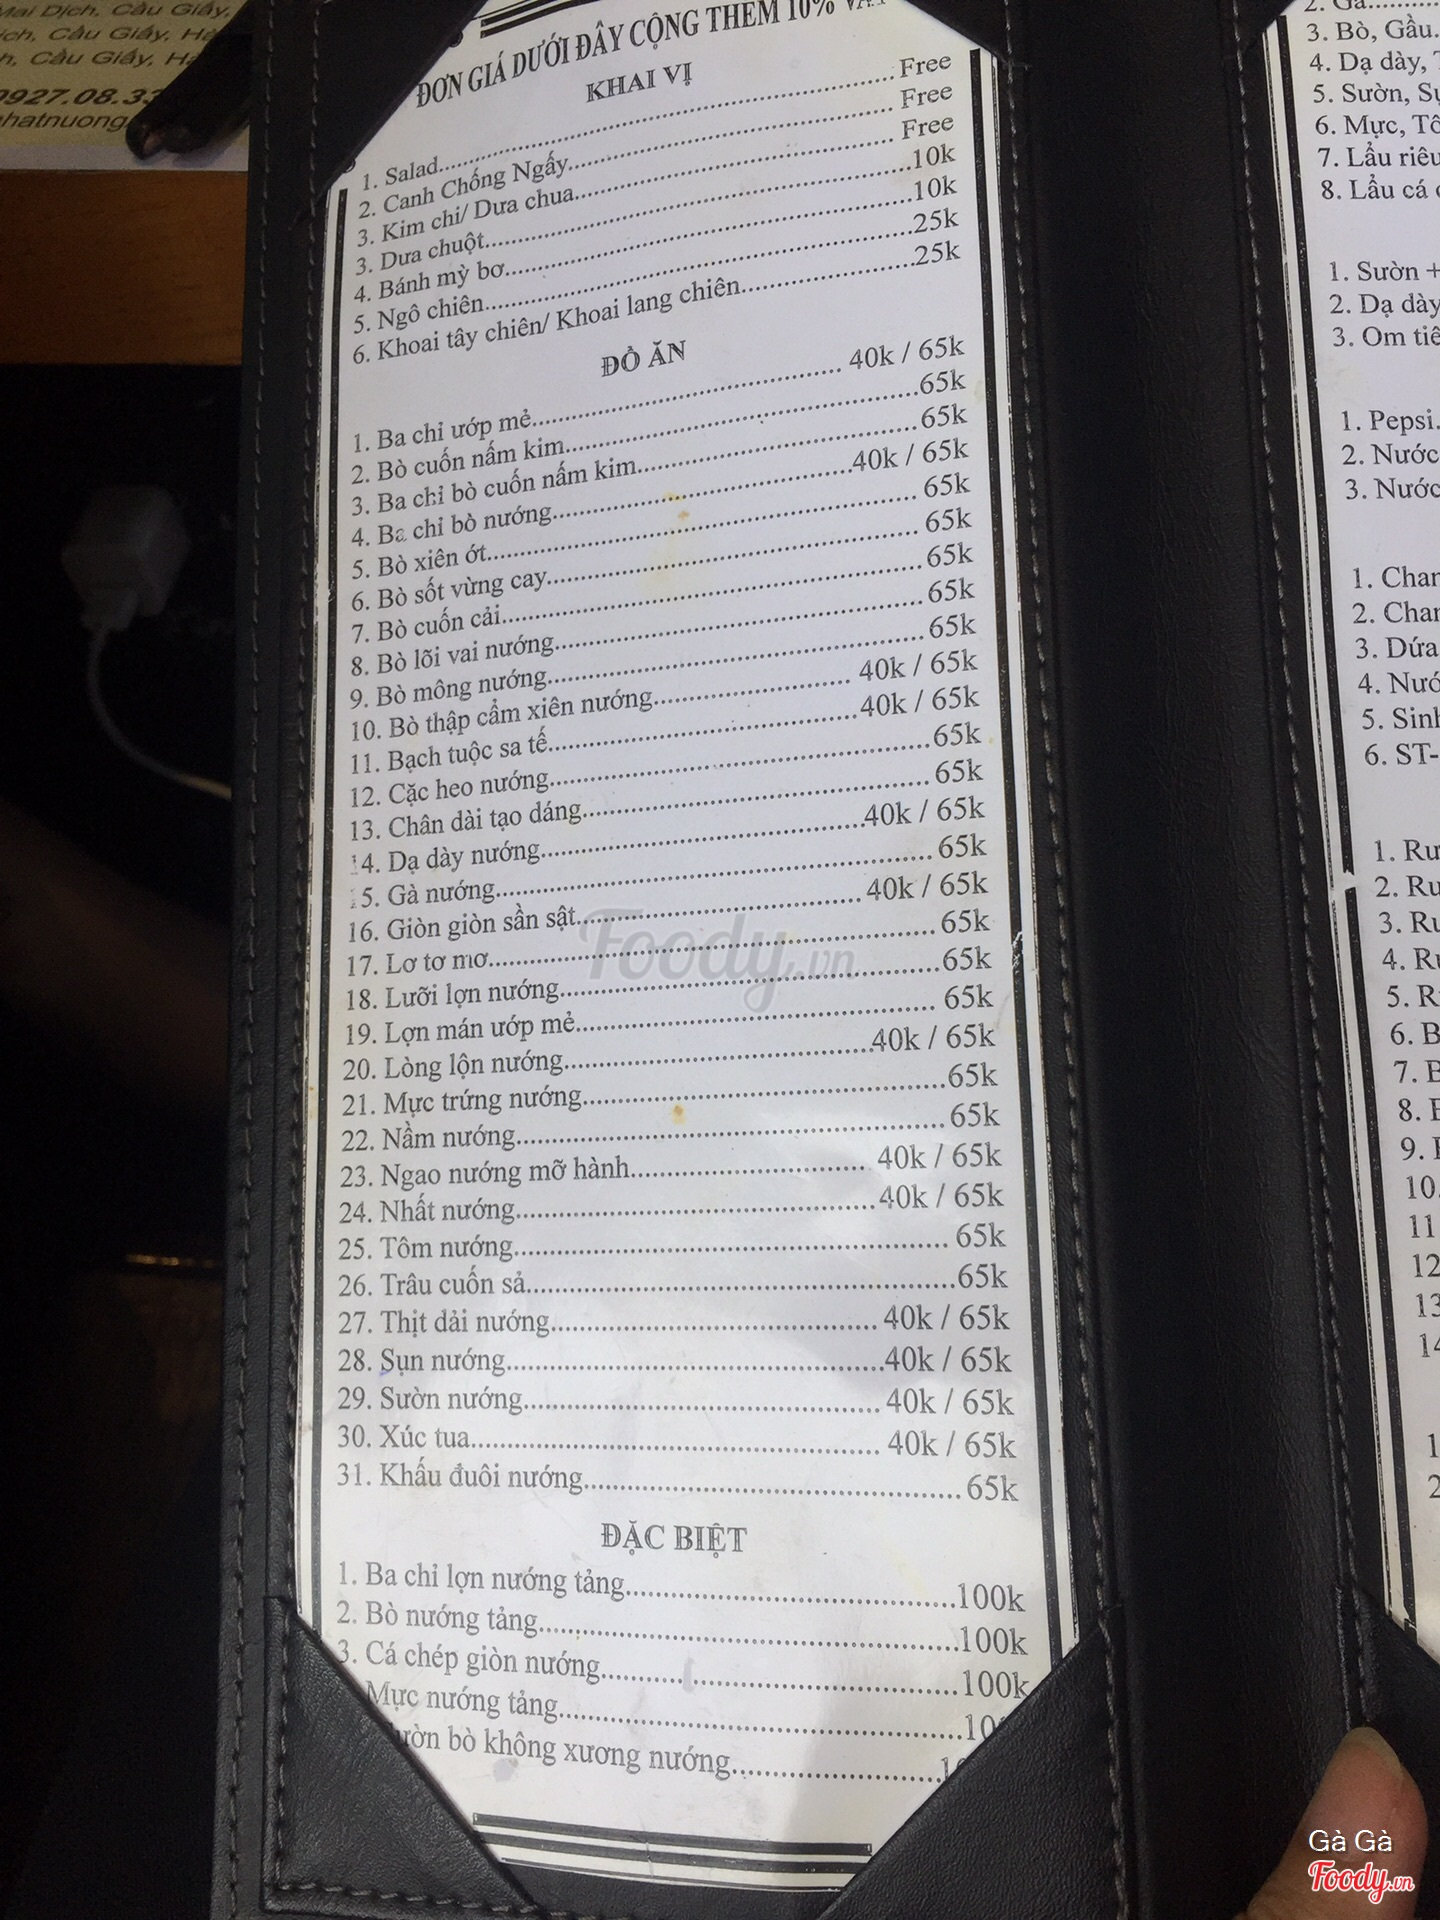 Mai Dịch, Cầu Giấy,
ịch, Cầu Giấy, Hà
n, Cầu Giấy, Hà
0927.08.33
nhatnuong.
ĐƠN GIÁ DƯỚI ĐÂY CỘNG THÊM 10% VAT
KHAI VỊ
1. Salad Free
2. Canh Chống Ngấy Free
3. Kim chi/ Dưa chua Free
3. Dưa chuột 10k
4. Bánh mỳ bơ 10k
5. Ngô chiên 25k
6. Khoai tây chiên/ Khoai lang chiên 25k
ĐỒ ĂN
1. Ba chỉ ướp mẻ 40k / 65k
2. Bò cuốn nấm kim 65k
3. Ba chỉ bò cuốn nấm kim 65k
4. Ba chỉ bò nướng 40k / 65k
5. Bò xiên ớt 65k
6. Bò sốt vừng cay 65k
7. Bò cuốn cải 65k
8. Bò lõi vai nướng 65k
9. Bò mông nướng 65k
10. Bò thập cẩm xiên nướng 40k / 65k
11. Bạch tuộc sa tế 40k / 65k
12. Cặc heo nướng 65k
13. Chân dài tạo dáng 65k
14. Dạ dày nướng 40k / 65k
15. Gà nướng 65k
16. Giòn giòn sần sật 40k / 65k
17. Lơ tơ mơ 65k
18. Lưỡi lợn nướng 65k
19. Lợn mán ướp mẻ 65k
20. Lòng lộn nướng 40k / 65k
21. Mực trứng nướng 65k
22. Nầm nướng 65k
23. Ngao nướng mỡ hành 40k / 65k
24. Nhất nướng 40k / 65k
25. Tôm nướng 65k
26. Trâu cuốn sả 65k
27. Thịt dải nướng 40k / 65k
28. Sụn nướng 40k / 65k
29. Sườn nướng 40k / 65k
30. Xúc tua 40k / 65k
31. Khấu đuôi nướng 65k
ĐẶC BIỆT
1. Ba chỉ lợn nướng tảng 100k
2. Bò nướng tảng 100k
3. Cá chép giòn nướng 100k
Mực nướng tảng 10
ườn bò không xương nướng 1
2. Gà
3. Bò, Gầu.
4. Dạ dày,
5. Sườn, Sụ
6. Mực, Tô
7. Lẩu riêu
8. Lẩu cá
1. Sườn +
2. Dạ dày
3. Om tiê
1. Pepsi.
2. Nước
3. Nước
1. Chan
2. Chan
3. Dứa
4. Nướ
5. Sinh
6. ST-
1. Rư
2. Ru
3. Ru
4. Ru
5. R
6. B
7. B
8.
9.
10.
11
12
13
14
1
2
Foody.vn
Gà Gà
Foody.vn